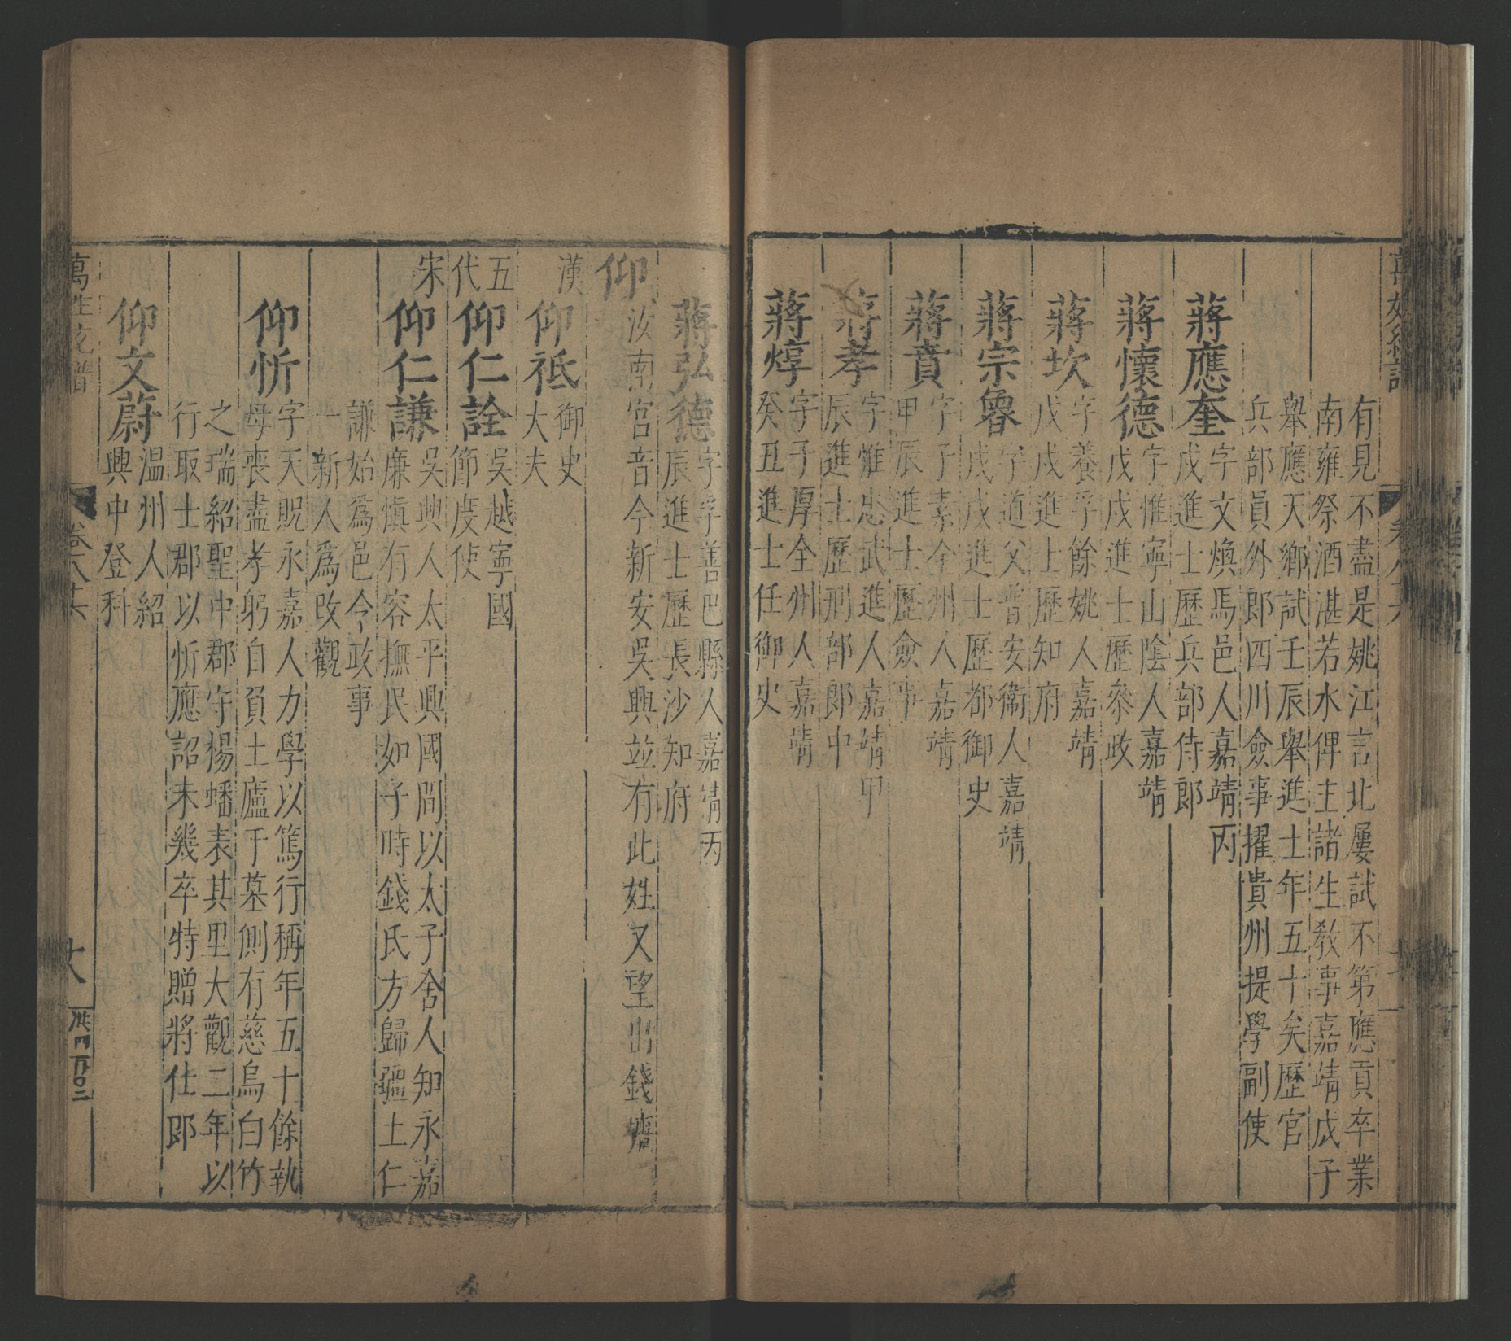 有見不盡是姚江言北屢試不第應貢卒業
南雍祭酒湛若水俾主諸生教事嘉靖戊子
舉應天鄉試壬辰舉進士年五十矣歷官
兵部員外郎四川僉事擢貴州提學副使
蔣應奎字文煥馬邑人嘉靖丙
戌進士歷兵部侍郎
蔣懷德字惟寧山陰人嘉靖
戊戌進士歷參政
蔣坎字養孚餘姚人嘉靖
戊戌進士歷知府
蔣宗魯字道父普安衞人嘉靖
戊戌進士歷都御史
蔣賁字子素全州人嘉靖
甲辰進士歷僉事
蔣孝字惟忠武進人嘉靖甲
辰進士歷刑部郎中
蔣焞字子厚全州人嘉靖
癸丑進士任御史
蔣弘德字孚善巴縣人嘉靖丙
辰進士歷長沙知府
仰汝南宮音今新安吳興並有此姓又望出錢塘
漢仰祗御史
大夫
五代仰仁詮吳越寧國
節度使
宋仰仁謙吳興人太平興國間以太子舍人知永嘉
廉愼有容撫民如子時錢氏方歸疆土仁
謙始為邑令政事
一新人為改觀
仰忻字天貺永嘉人力學以篤行稱年五十餘執
母喪盡孝躬自負土廬于墓側有慈烏白竹
之瑞紹聖中郡守楊蟠表其里大觀二年以
行取士郡以忻應詔未幾卒特贈將仕郎
仰文蔚溫州人紹
興中登科
萬姓統譜
卷八十六
十八